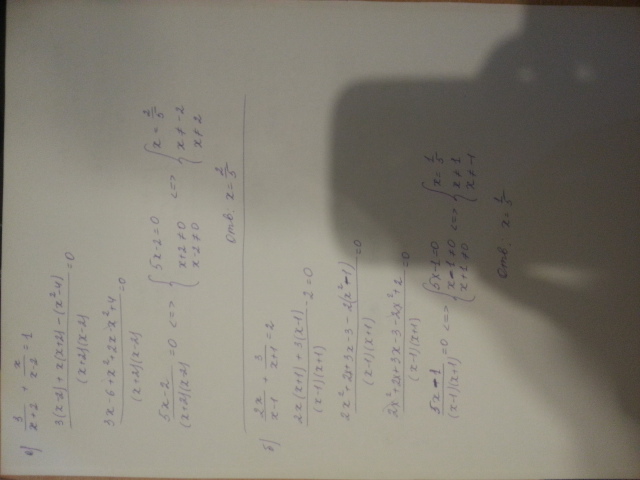 в) 3/(x+2) + x/(x-2) = 1
(3(x-2) + x(x+2) - (x²-4))/((x+2)(x-2)) = 0
(3x-6+x²+2x-x²+4)/((x+2)(x-2)) = 0
(5x-2)/((x+2)(x-2)) = 0 <=> { 5x-2=0 x+2≠0 x-2≠0 <=> { x=2/5 x≠-2 x≠2
Отв: x=2/5
б) 2x/(x-1) + 3/(x+1) = 2
(2x(x+1) + 3(x-1))/((x-1)(x+1)) - 2 = 0
(2x²+2x+3x-3-2(x²-1))/((x-1)(x+1)) = 0
(2x²+2x+3x-3-2x²+2)/((x-1)(x+1)) = 0
(5x-1)/((x-1)(x+1)) = 0 <=> { 5x-1=0 x-1≠0 x+1≠0 <=> { x=1/5 x≠1 x≠-1
Отв: x=1/5